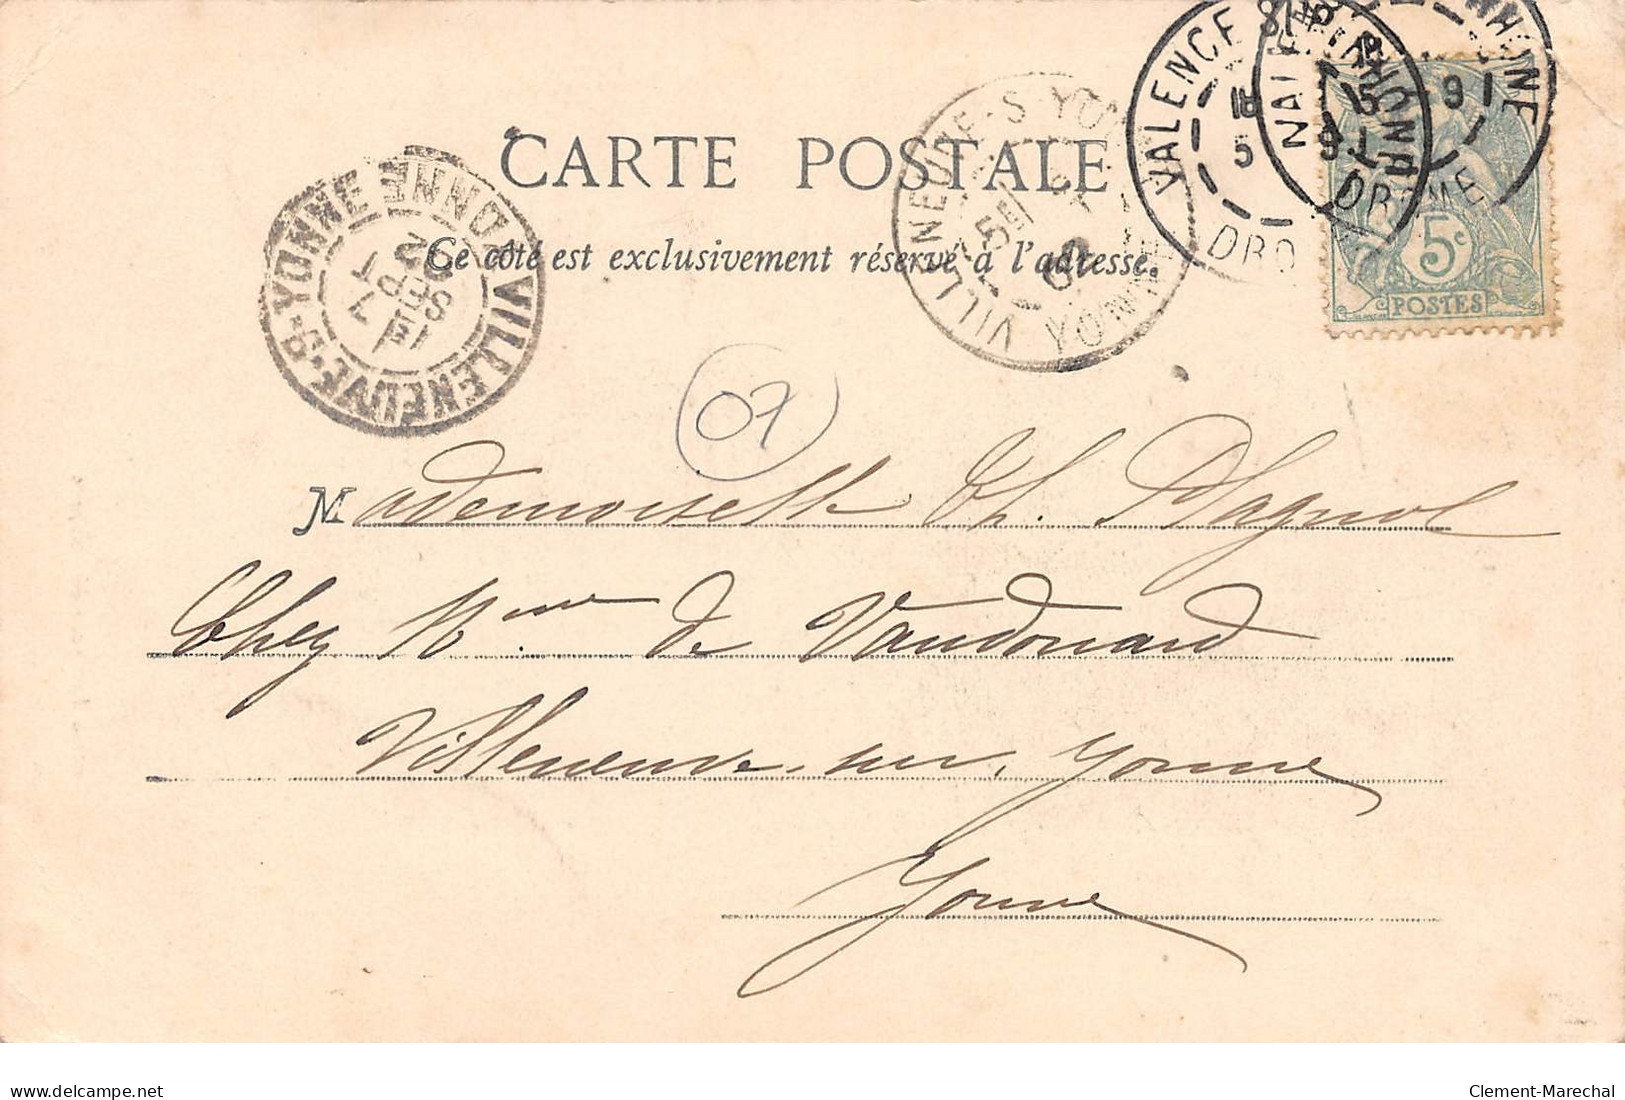 CARTE POSTALE
Ce côté est exclusivement réservé à l'adresse.
VILLENEUVE-S-YONNE YONNE
VILLENEUVE-S-YONNE YONNE
VALENCE
DROME
5c
POSTES
07
Mademoiselle Th. Magnol
Chez Mme de Vaudouard
Villeneuve sur Yonne
Yonne
delcampe.net
Clement-Marechal